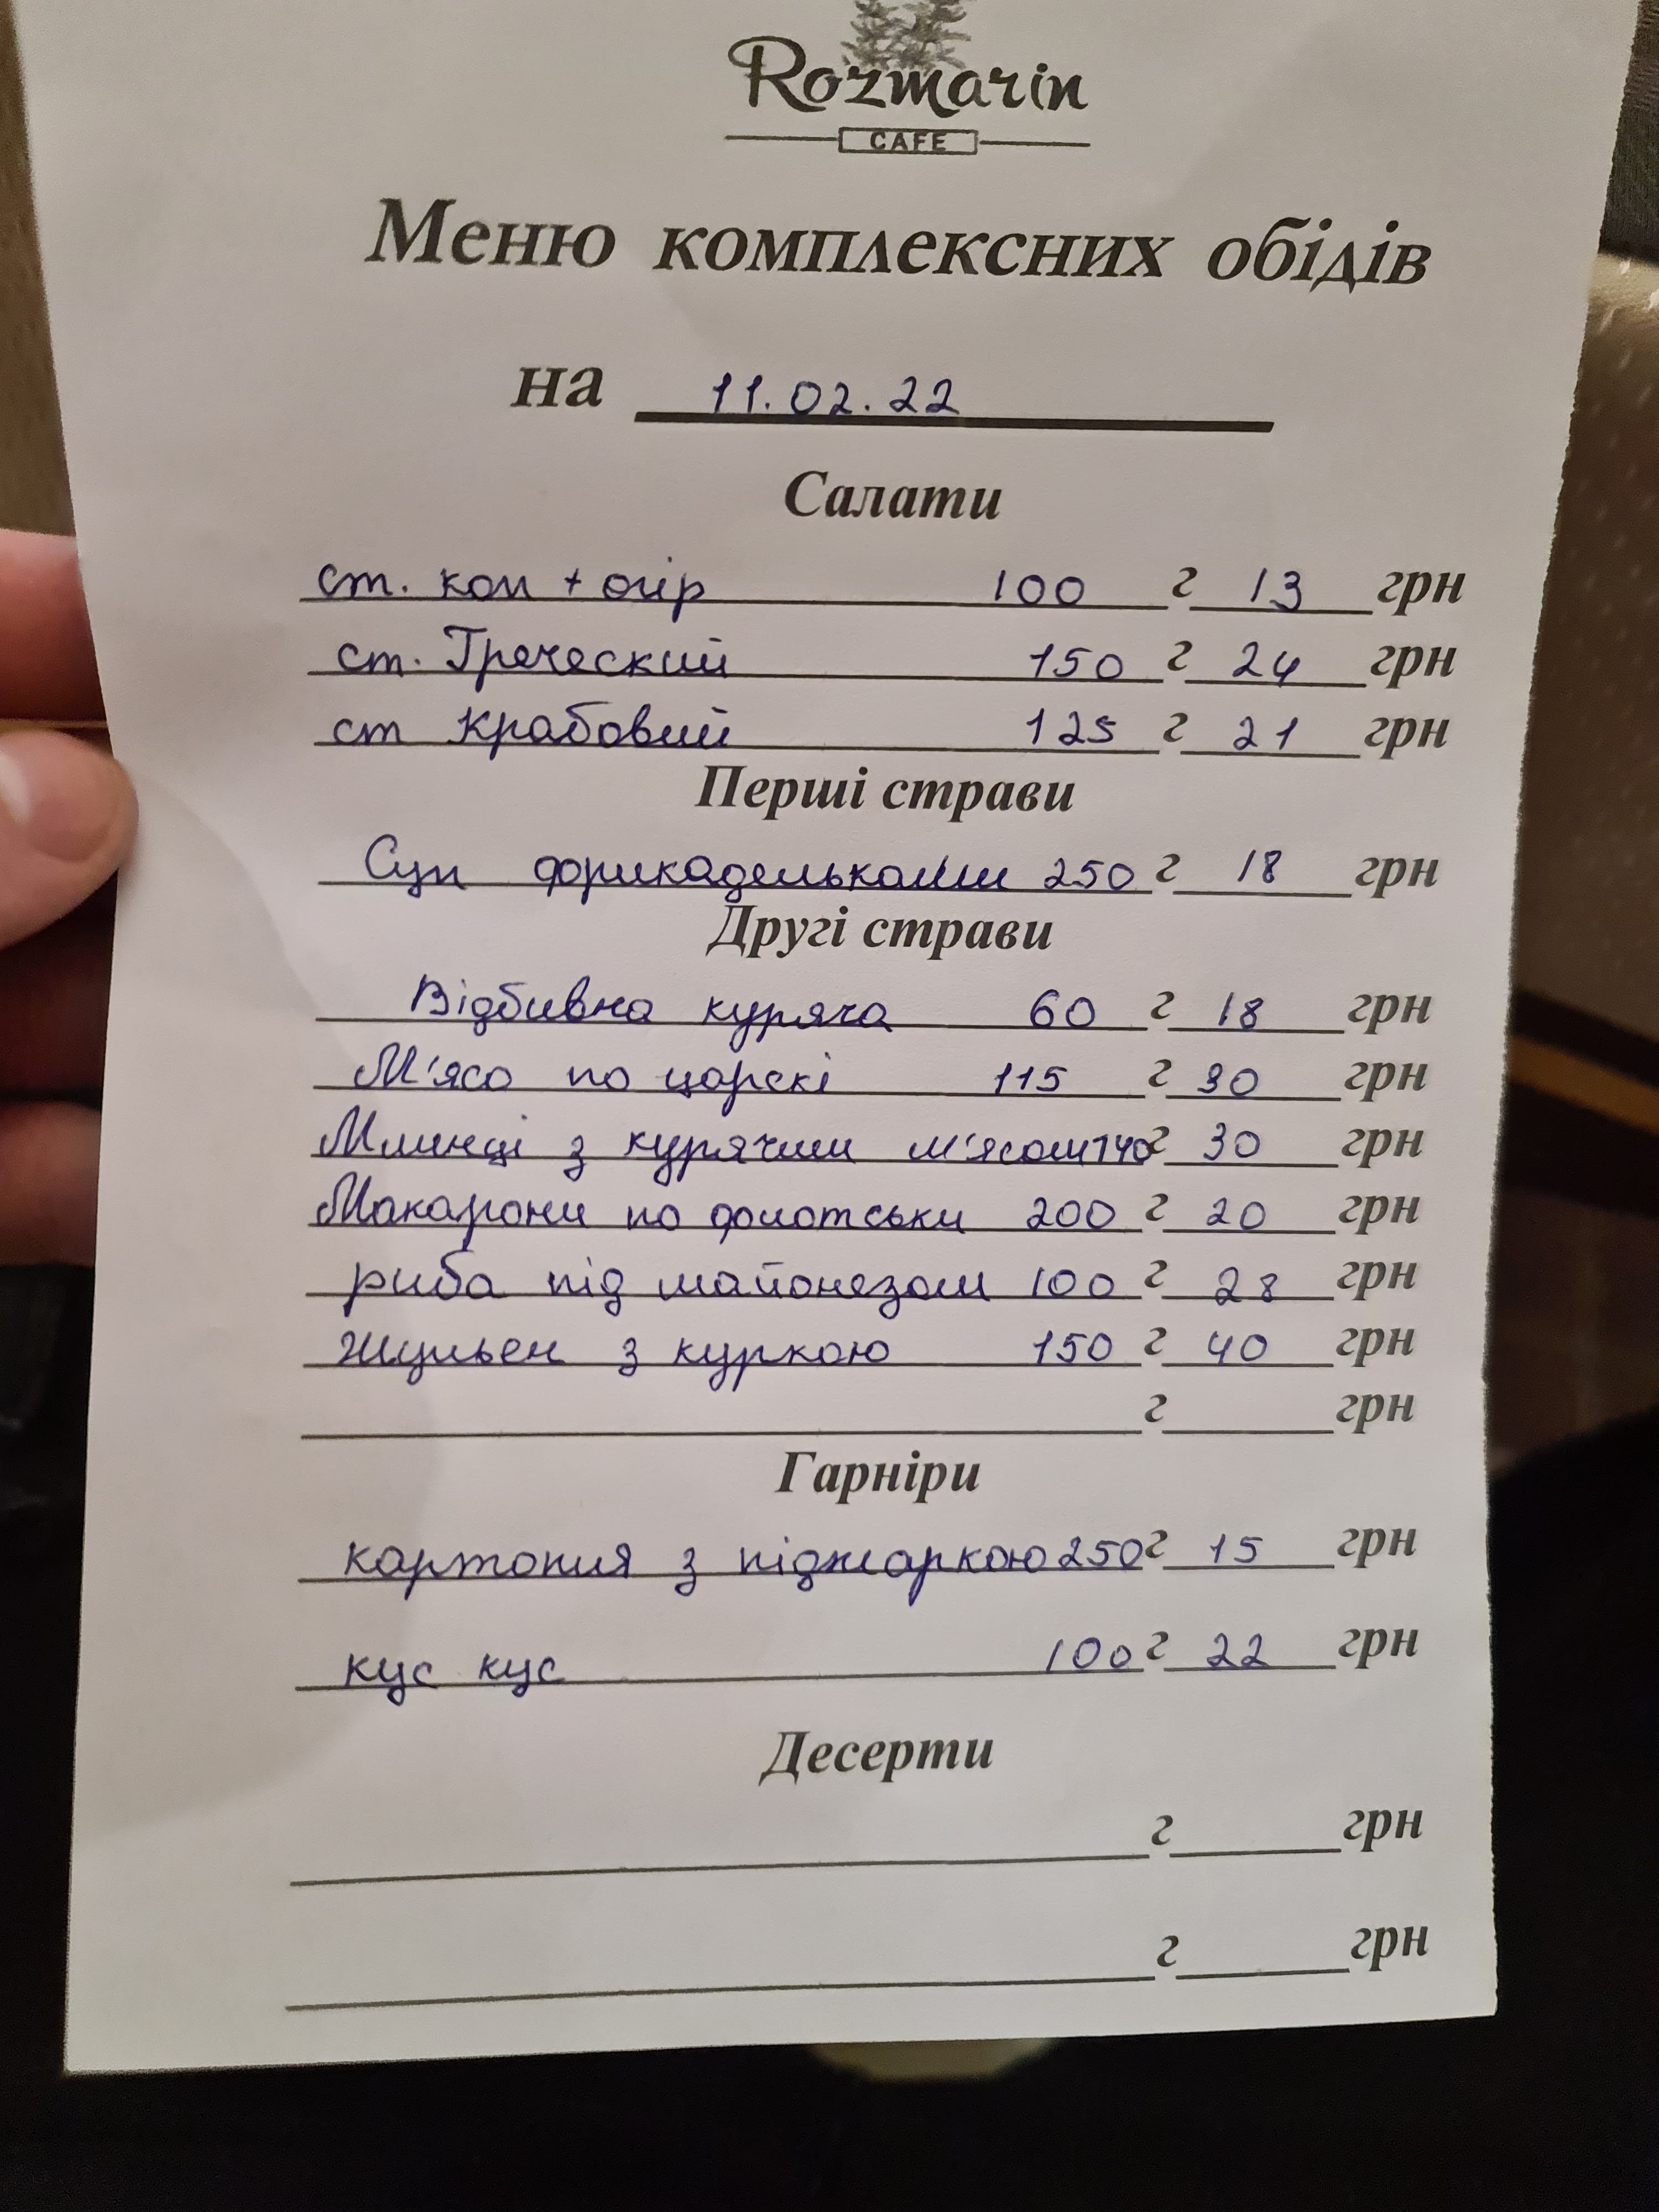 Rozmarin
CAFE
Меню комплексних обідів
на 11.02.22
Салати
ст. коп + огір 100 г 13 грн
ст. Греческий 150 г 24 грн
ст Крабовий 125 г 21 грн
Перші страви
Суп фрикадельками 250 г 18 грн
Другі страви
Відбивна куряча 60 г 18 грн
М'ясо по царскі 115 г 30 грн
Млинці з курячим м'ясом 140 г 30 грн
Макарони по флотськи 200 г 20 грн
риба під майонезом 100 г 28 грн
Жульен з куркою 150 г 40 грн
г грн
Гарніри
картопля з піджаркою 250 г 15 грн
кус кус 100 г 22 грн
Десерти
г грн
г грн